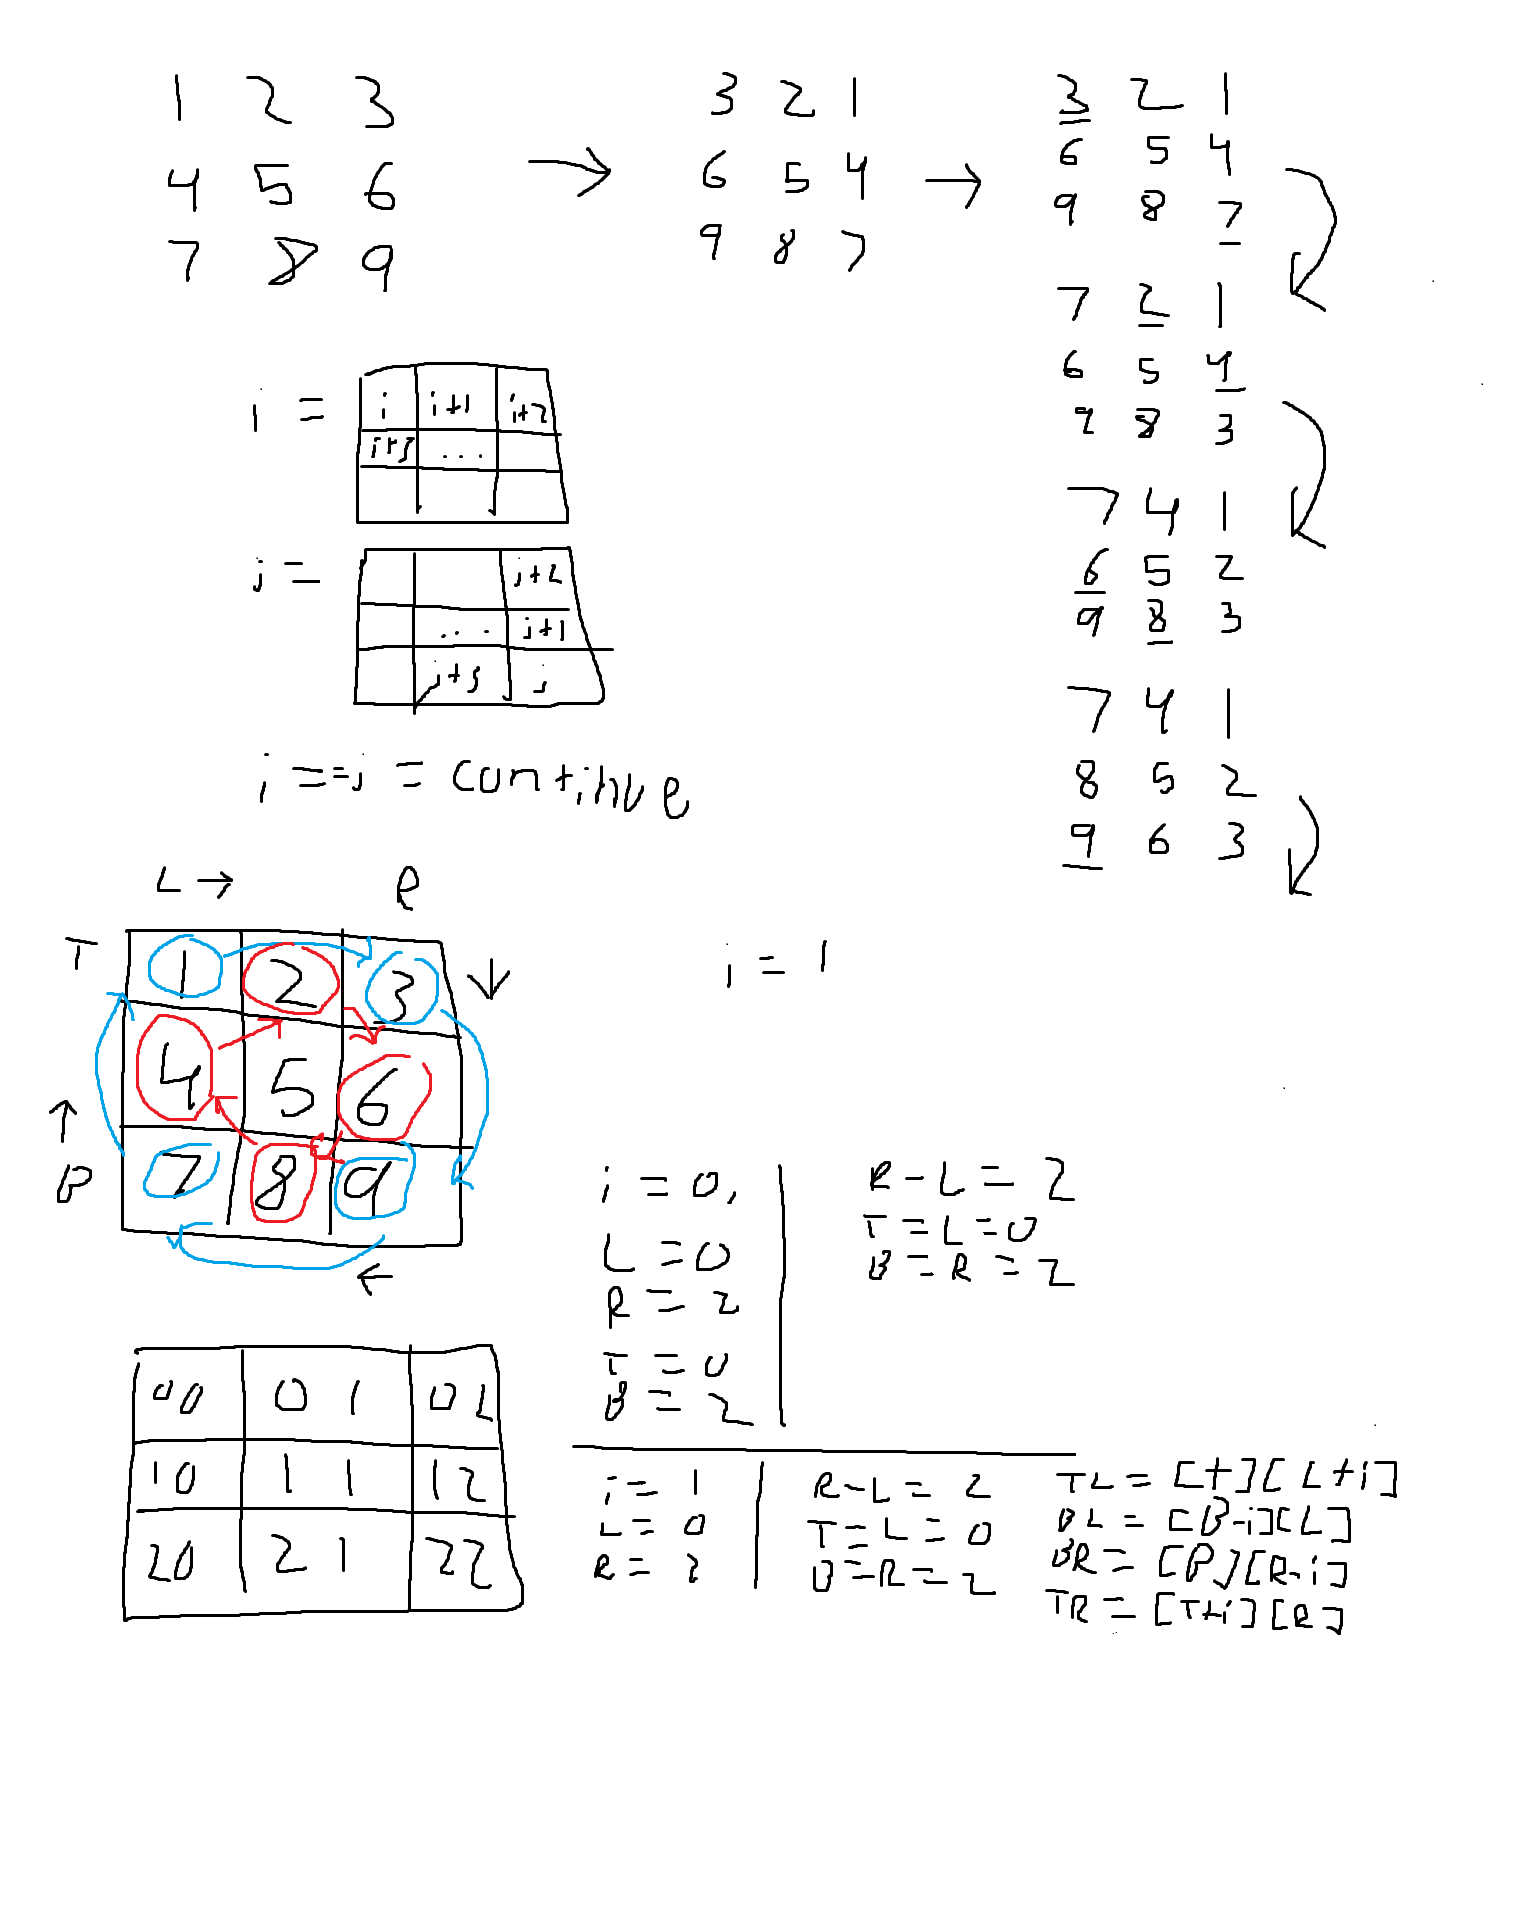 1 2 3
4 5 6
7 8 9
→
3 2 1
6 5 4
9 8 7
→
3 2 1
6 5 4
9 8 7
7 2 1
6 5 4
9 8 3
7 4 1
6 5 2
9 8 3
7 4 1
8 5 2
9 6 3
i =
i i+1 i+2
i+3 ...
j =
j+2
... j+1
j+3 j
i == j = continue
L → R
T
1 2 3 ↓
4 5 6
↑
B
7 8 9
←
i = 1
i = 0,
L = 0
R = 2
T = 0
B = 2
R - L = 2
T = L = 0
B = R = 2
00 01 02
10 11 12
20 21 22
i = 1
L = 0
R = 2
R-L = 2
T = L = 0
B = R = 2
TL = [t][L+i]
BL = [B-i][L]
BR = [B][R-i]
TR = [T+i][R]